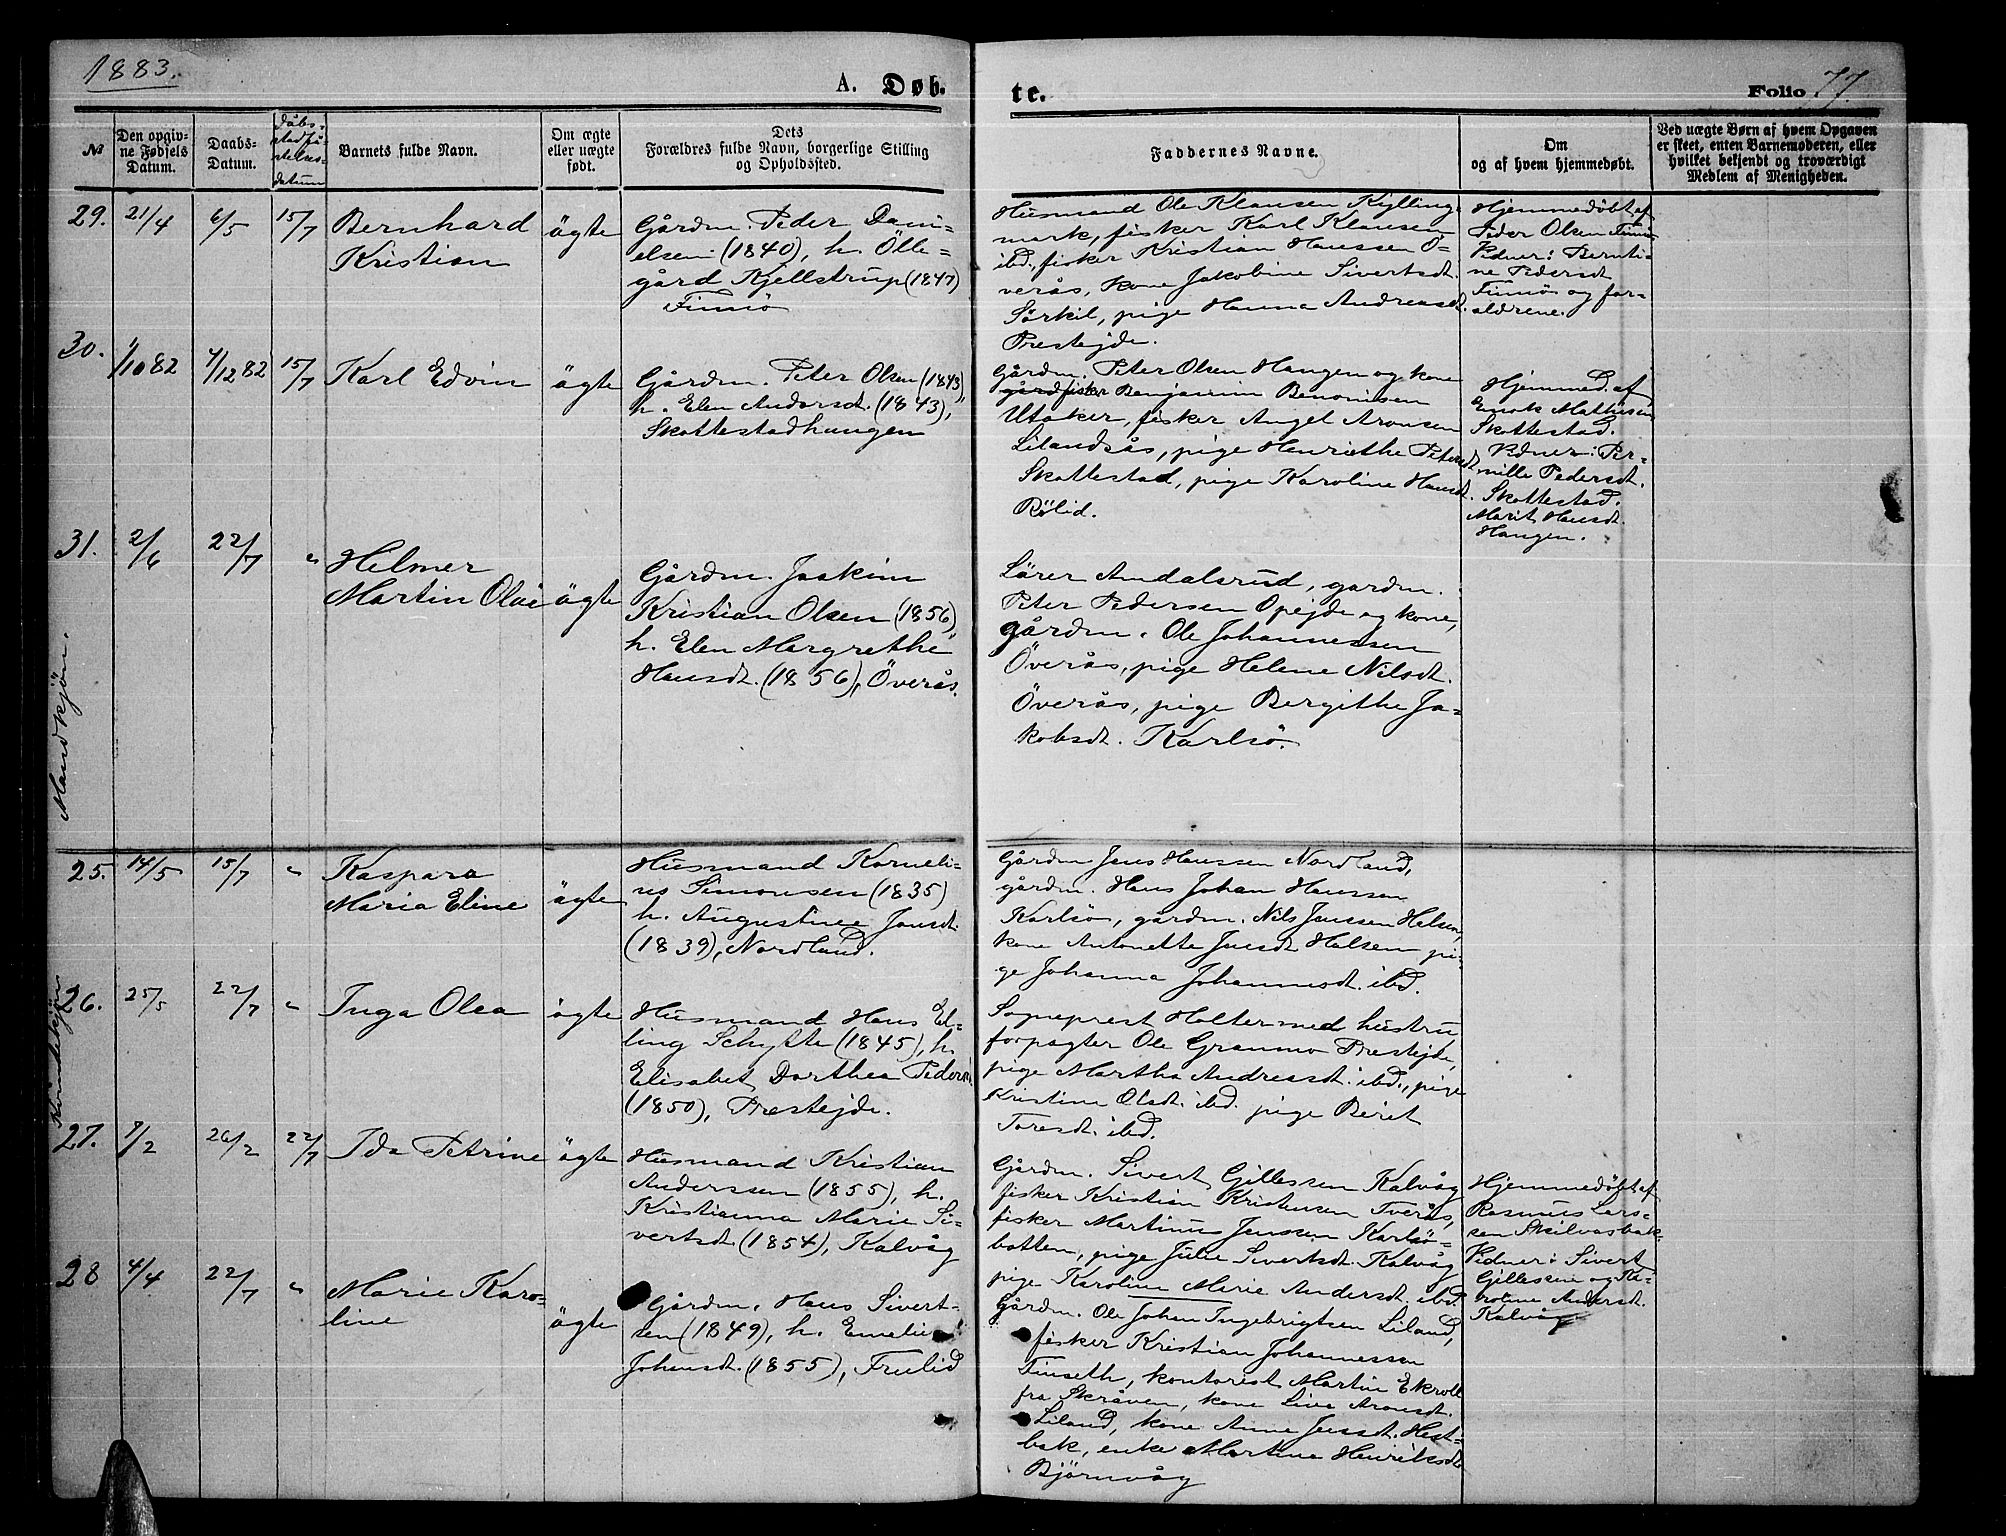 1883.
A. Døb-
te.
Folio 77.
№
Den opgiv-
ne Fødsels
Datum.
Daabs-
Datum.
Dåbs-
stadfä-
stelses-
datum
Barnets fulde Navn.
Om ægte
eller uægte
født.
Dets
Forældres fulde Navn, borgerlige Stilling
og Opholdssted.
Faddernes Navne.
Om
og af hvem hjemmedøbt.
Ved uægte Børn af hvem Opgaven
er skeet, enten Barnemoderen, eller
hvilket bekjendt og troværdigt
Medlem af Menigheden.
29. 21/4 6/5 15/7
Bernhard
Kristian
ägte
Gårdm. Peder Dani-
elsen (1840), h. Ölle-
gård Kjellstrup (1847)
Finnö
Husmand Ole Klausen Kylling-
mark, fisker Karl Klausen
ibd., fisker Kristian Hanssen Ö-
verås, kone Jakobine Sivertsdt.
Sörkil, pige Hanna Andreasdt.
Prestejde.
Hjemmedöbt af
Peder Olsen Finnö
Vidner: Bernti-
ne Pedersdt
Finnö og for-
äldrene.
30. 1/10 82 7/12 82 15/7
Karl Edvin
ägte
Gårdm. Peter Olsen (1843),
h. Elen Andersdt. (1843),
Skottestadhaugen
Gårdm. Peter Olsen Haugen og kone
gård fisker Benjamin Benonisen
Utaker, fisker Angel Aronsen
Lilandsås, pige Henrikthe Petersdt.
Skottestad, pige Karoline Hansdt.
Rölid.
Hjemmed. af
Enok Mathisen
Skottestad.
Vidner: Per-
nille Pedersdt.
Skottestad.
Marit Hansdt.
Haugen.
31. 2/6 22/7 "
Helmer
Martin Olai
ägte
Gårdm. Joakim
Kristian Olsen (1856),
h. Elen Margrethe
Hansdt. (1856), Överås.
Lärer Andalsrud, gardm.
Peter Pedersen Opejde og kone,
gårdm. Ole Johannessen
Överås, pige Helene Nilsdt.
Överås, pige Bergithe Ja-
kobsdt. Karlsö.
Mandkjön.
25. 14/5 15/7 "
Kaspara
Maria Eline
ägte
Husmand Korneli-
us Simonsen (1835)
h. Augustine Jonsdt.
(1839), Nordland.
Gårdm Jens Hanssen Nordland,
gårdm. Hans Johan Hanssen
Karlsö, gårdm. Nils Jenssen Helsen,
kone Antonette Jensdt Holsen, pi-
ge Johanna Johannesdt. ibd.
Kvindekjön
26. 25/5 22/7 "
Inga Olea
ägte
Husmand Hans El-
ling Schytte (1845), h.
Elisabet Dorthea Pedersdt.
(1850), Prestejde.
Sogneprest Holter med hustru
forpagter Ole Granmo Prestejde,
pige Martha Andreasdt. ibd., pige
Kristine Olsdt. ibd. pige Beret
Toresdt. ibd.
27. 7/2 26/2 22/7
Ida Petrine
ägte
Husmand Kristian
Anderssen (1855), h.
Kristianna Marie Si-
vertsdt (1854), Kalvåg
Gårdm. Sivert Gillessen Kalvåg
fisker Kristian Kristensen Tverås,
fisker Martinus Jenssen Karlsö-
botten, pige Julie Sivertsdt. Kalvåg
pige Karoline Marie Andersdt. ibd.
Hjemmedöbt af
Rasmus Lars-
sen Skilvasbak.
Vidner: Sivert
Gillessen og Ka-
roline Andersdt.
Kalvåg
28 4/4 22/7 "
Marie Karo-
line
ägte
Gårdm. Hans Sivert-
sen (1849), h. Emelie
Johansdt. (1855), Frulid
Gårdm. Ole Johan Ingebrigtsen Liland,
fisker Kristian Johannessen
Finseth, kontorist Martin Ekroll
fra Skråven, kone Liva Aronsdt.
Liland, kone Anne Jensdt. Hest-
bak, enke Martina Henriksdt
Björnvåg